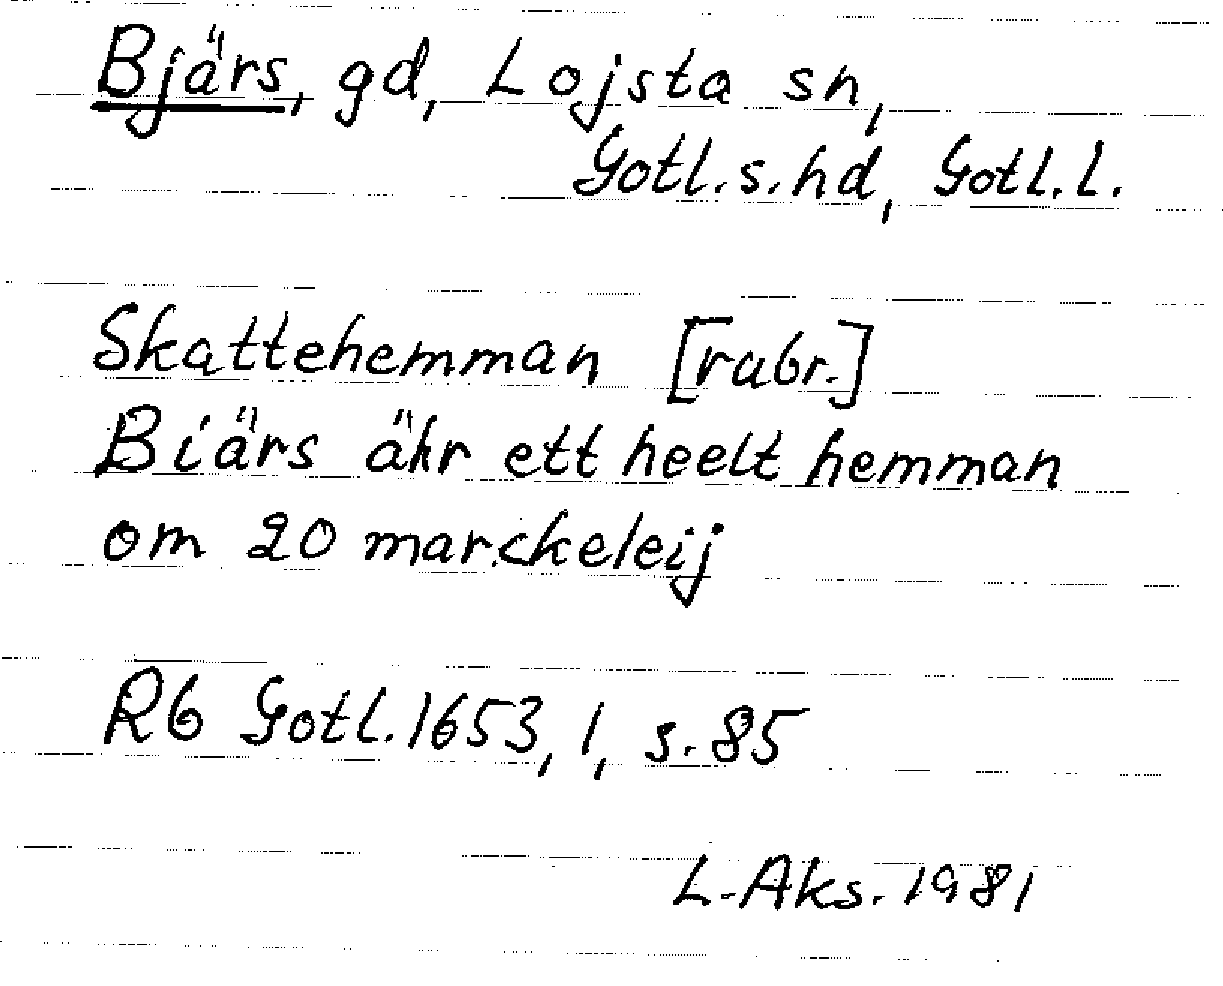 Bjärs, gd, Lojsta sn,
Gotl.s.hd, Gotl.l.
Skattehemman [rubr.]
Biärs ähr ett heelt hemman
om 20 marckeleij
Rb Gotl.1653, 1, s.85
L-Aks.1981